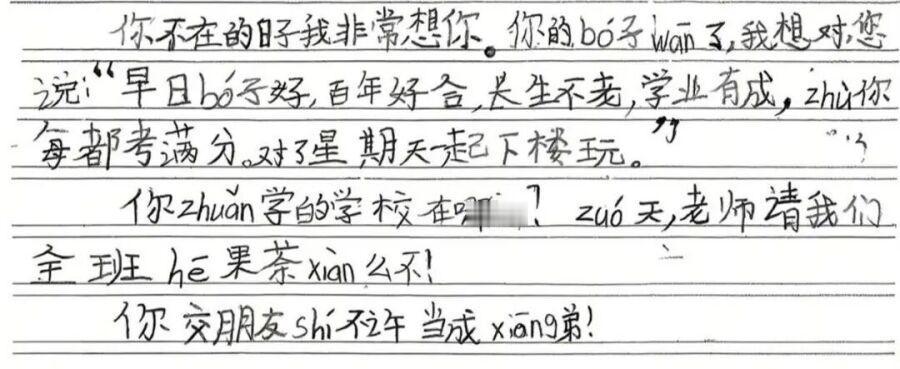 你不在的日子我非常想你。你的bó子wān了,我想对您
说:“早日bó子好,百年好合,长生不老,学业有成,zhù你
每都考满分。对了星期天一起下楼玩。”
你zhuǎn学的学校在 ? zuó天,老师请我们
全班hē果茶xiàn么不!
你交朋友shí不 当成xiōng弟!